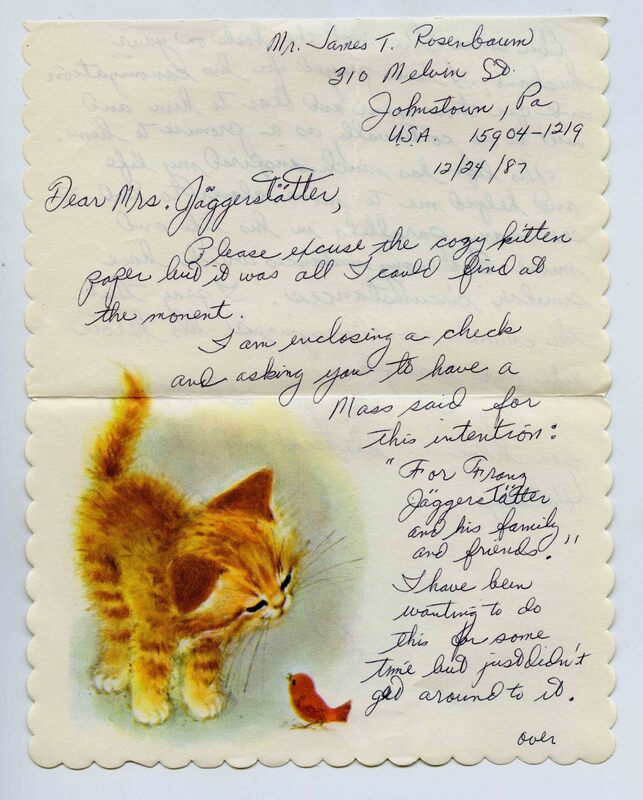 Mr. James T. Rosenbaum
310 Melvin St.
Johnstown, Pa
USA. 15904-1219
12/24/87
Dear Mrs. Jäggerstätter,
Please excuse the cozy kitten
paper but it was all I could find at
the monent.
I am enclosing a check
and asking you to have a
Mass said for
this intention:
"For Franz
Jäggerstätter
and his family
and friends."
I have been
wanting to do
this for some
time but just didn't
get around to it.
over